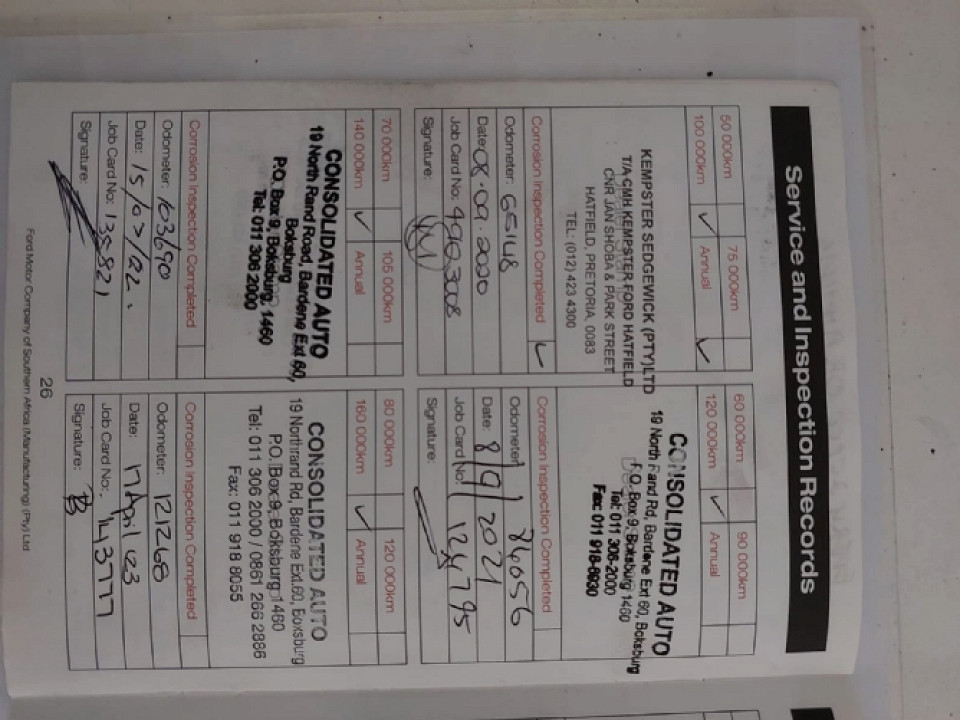 Service and Inspection Records
50 000km 75 000km
100 000km ✓ Annual ✓
KEMPSTER SEDGEWICK (PTY)LTD
T/A CMH KEMPSTER FORD HATFIELD
CNR JAN SHOBA & PARK STREET
HATFIELD, PRETORIA 0083
TEL: (012) 423 4300
Corrosion Inspection Completed ✓
Odometer: 65148
Date: 08.09.2020
Job Card No: 490308
Signature:
60 000km 90 000km
120 000km ✓ Annual
CONSOLIDATED AUTO
19 North Rand Rd, Bardene Ext 60, Boksburg
P.O. Box 9, Boksburg 1460
Tel: 011 306-2000
Fax: 011 918-8930
Corrosion Inspection Completed
Odometer: 84656
Date: 8/9/2021
Job Card No: 124795
Signature:
70 000km 105 000km
140 000km ✓ Annual
CONSOLIDATED AUTO
19 North Rand Road, Bardene Ext 60,
Boksburg
P.O. Box 9, Boksburg, 1460
Tel: 011 306 2000
Corrosion Inspection Completed
Odometer: 103690
Date: 15/07/22.
Job Card No: 135821
Signature:
80 000km 120 000km
160 000km ✓ Annual
CONSOLIDATED AUTO
19 Northrand Rd, Bardene Ext.60, Boksburg
P.O. Box 9, Boksburg 1460
Tel: 011 306 2000 / 0861 266 2886
Fax: 011 918 8055
Corrosion Inspection Completed
Odometer: 121268
Date: 17 April 23
Job Card No: 143777
Signature:
26
Ford Motor Company of Southern Africa (Manufacturing) (Pty) Ltd